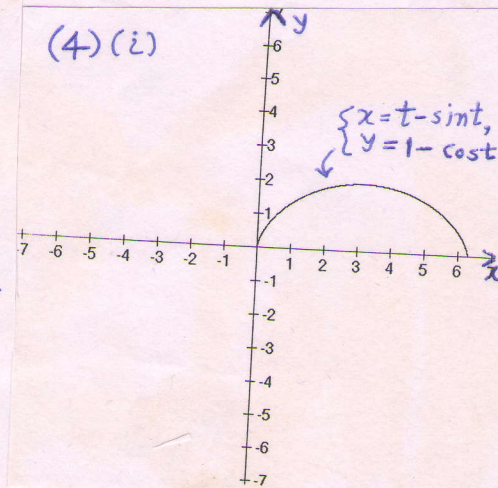 (4)(i)
y
{x=t-sint,
{y=1-cost
6
5
4
3
2
1
-7 -6 -5 -4 -3 -2 -1 1 2 3 4 5 6
x
-1
-2
-3
-4
-5
-6
-7